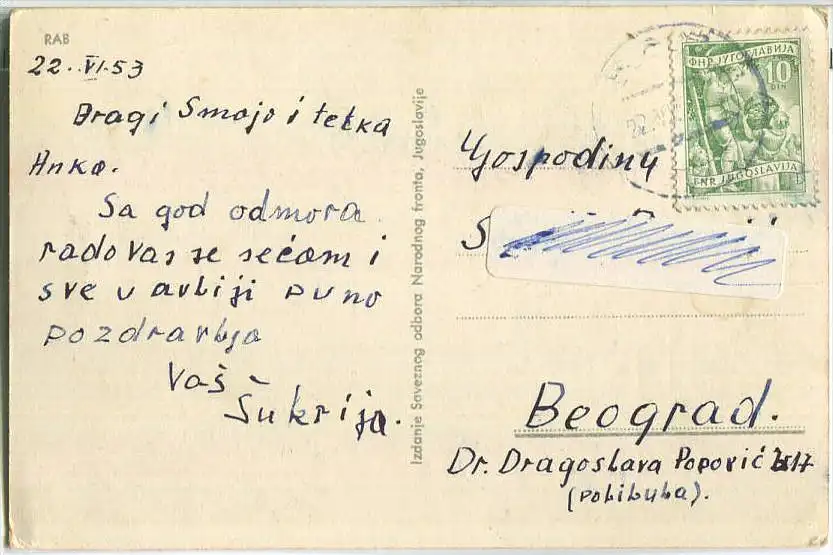 RAB
22. VI. 53
Dragi Smajo i tetka
Anko.
Sa god odmora
rado Vas se sećam i
sve u avliji puno
pozdravlja
Vaš
Šukrija.
Izdanje Saveznog odbora Narodnog fronta, Jugoslavije
ФНР ЈУГОСЛАВИЈА
10
DIN
FNR JUGOSLAVIJA
Gospodinu
S
Beograd.
Dr. Dragoslava Popović 17
(Palilula).